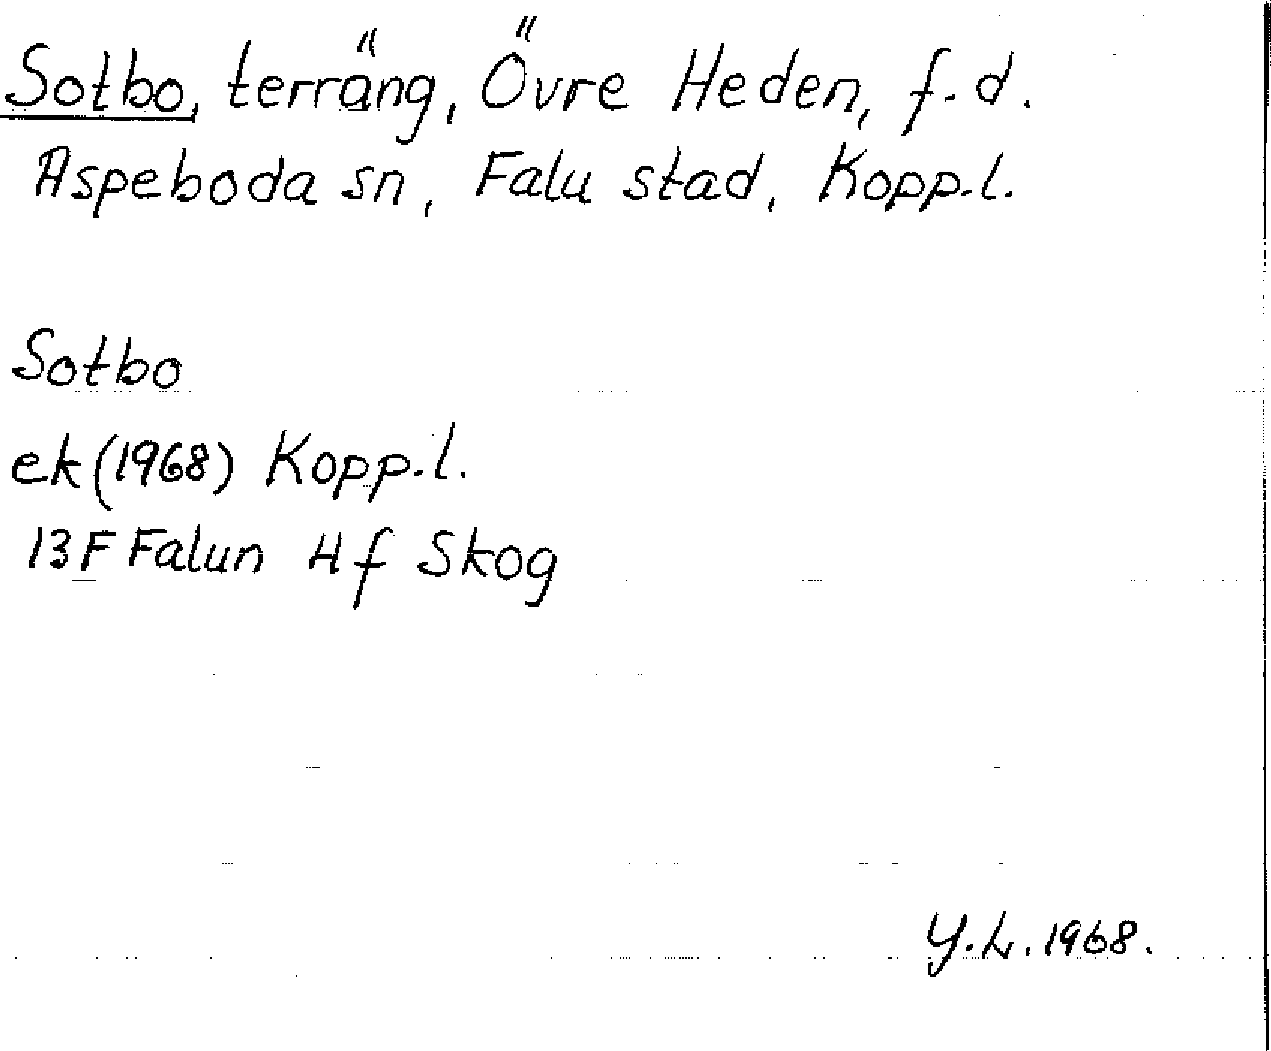 Sotbo, terräng, Övre Heden, f.d.
Aspeboda sn, Falu stad, Kopp.l.
Sotbo
ek (1968) Kopp.l.
13F Falun Hf Skog
Y.L. 1968.